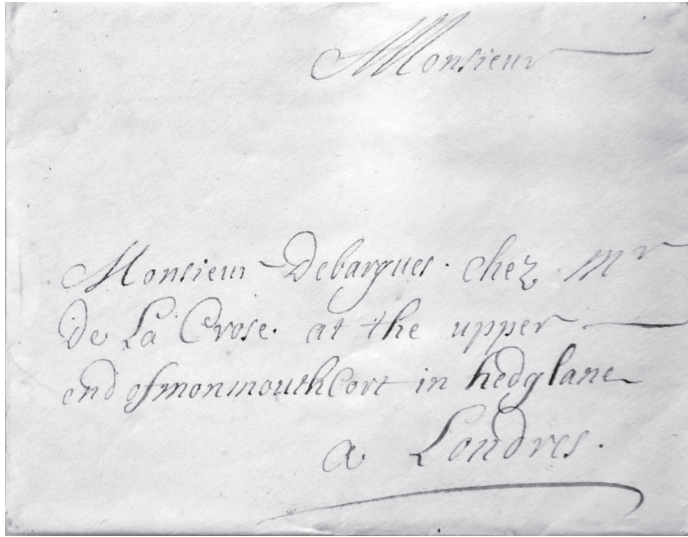 Monsieur
Monsieur Debargues. chez Mr
De La Crose. at the upper
end of monmouth Cort in hedglane
a Londres.